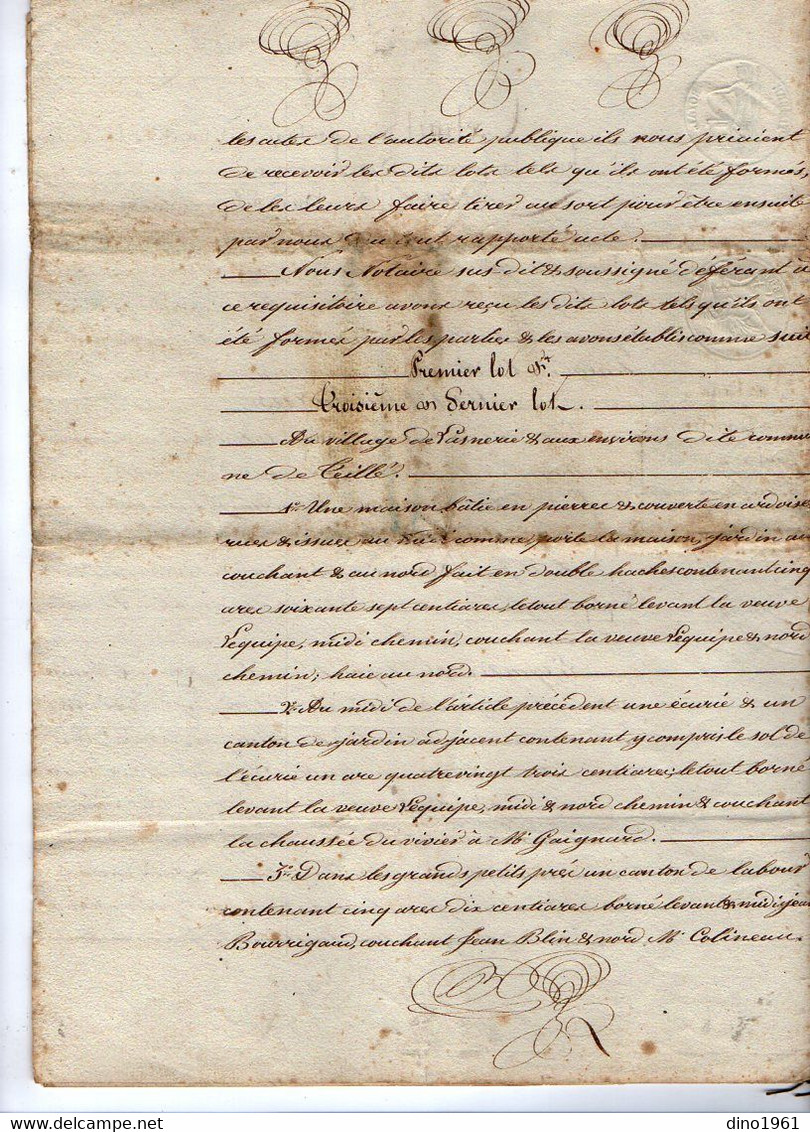 les actes de l'autorité publique ils nous priaient
de recevoir les dits lots tels qu'ils ont été formés,
de les leurs faire tirer au sort pour être ensuite
par nous du tout rapporté acte.
Nous Notaire sus-dit & soussigné déférant à
ce requisitoire avons reçu les dits lots tels qu'ils ont
été formés par les parties & les avons établis comme suit
Premier lot &.
Troisième & Dernier lot.
Au village de & aux environs dite commu
ne de Teillé.
1° Une maison bâtie en pierres & couverte en ardoise
rues & issues au midi comme porte la maison, jardin au
couchant & au nord fait en double haches contenant cinq
ares soixante sept centiares, le tout borné levant la veuve
Léquipe, midi chemin, couchant la veuve Léquipe & nord
chemin; haie au nord.
2° Au midi de l'article précédent une écurie & un
canton de jardin adjacent contenant y compris le sol de
l'écurie un are quatre vingt trois centiares; le tout borné
levant la veuve Léquipe, midi & nord chemin & couchant
la chaussée du vivier à Mr Gaignard.
3° Dans les grands petits prés un canton de labour
contenant cinq ares dix centiares borné levant & midi Jean
Bourrigaud, couchant Jean Blin & nord Mr Colineau.
dino1961